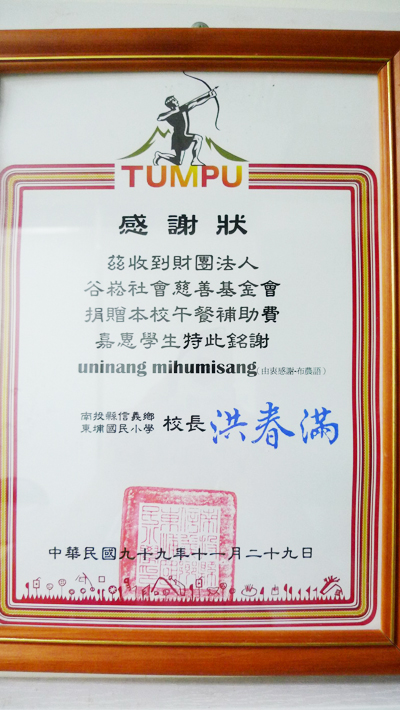 TUMPU
感謝狀
茲收到財團法人
谷崧社會慈善基金會
捐贈本校午餐補助費
嘉惠學生特此銘謝
uninang mihumisang(由衷感謝-布農語)
南投縣信義鄉
東埔國民小學 校長 洪春滿
中華民國九十九年十一月二十九日